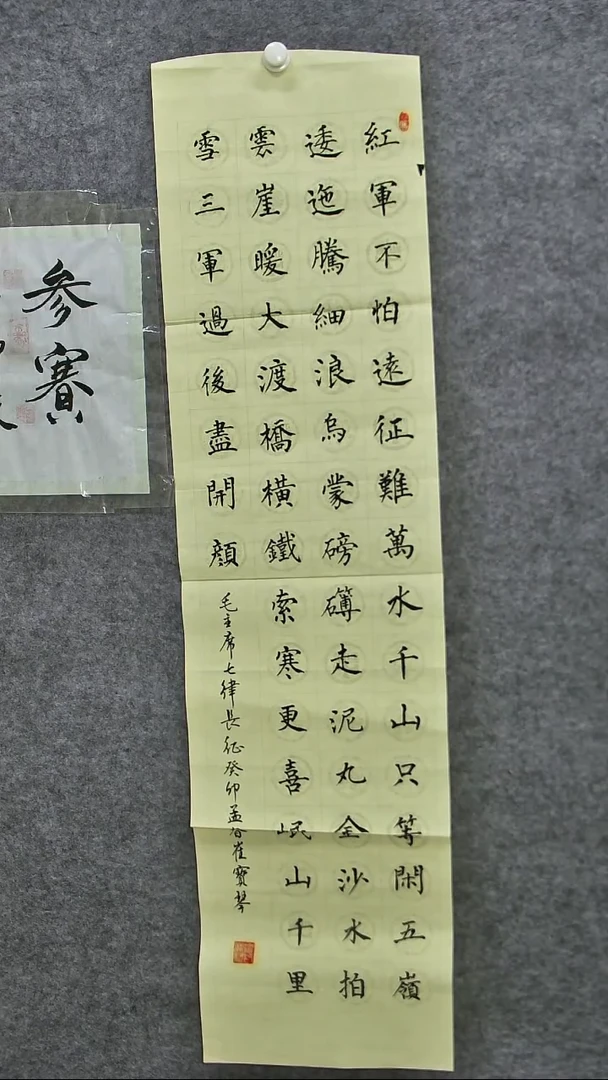 紅軍不怕遠征難萬水千山只等閑五嶺
逶迤騰細浪烏蒙磅礴走泥丸金沙水拍
雲崖暖大渡橋橫鐵索寒更喜岷山千里
雪三軍過後盡開顔
毛主席七律長征癸卯孟春崔寶琴
参賽